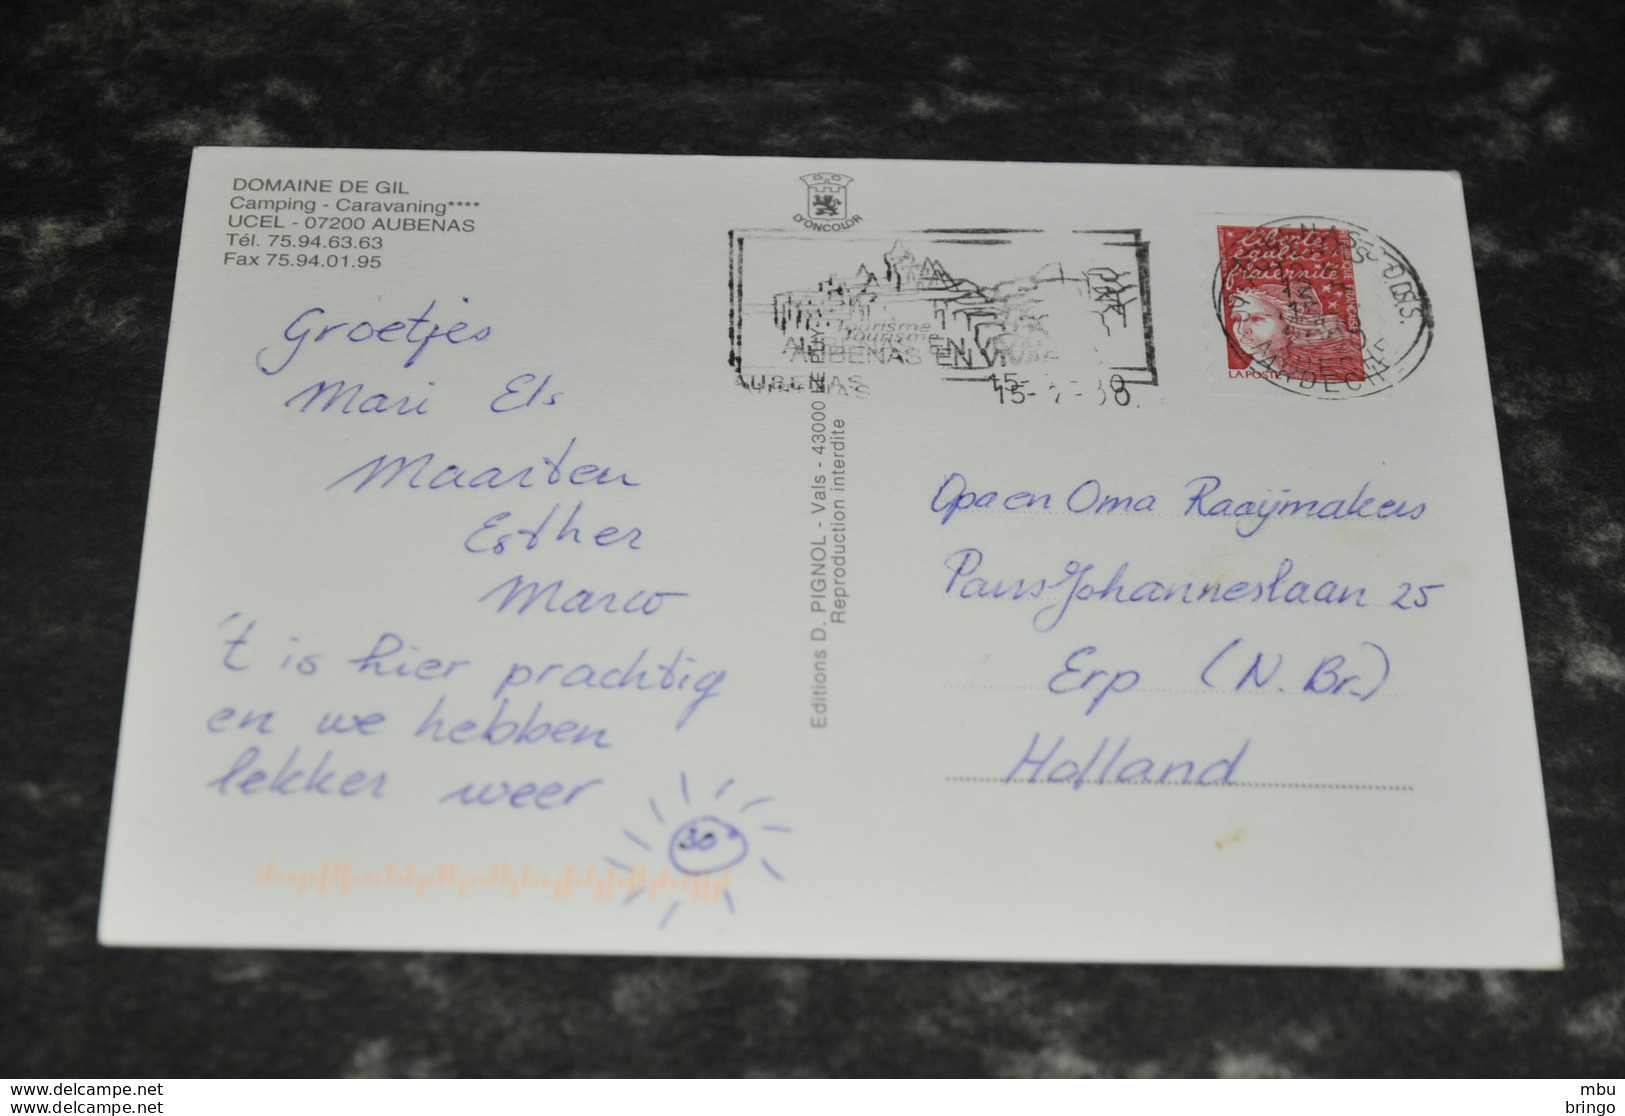 DOMAINE DE GIL
Camping - Caravaning****
UCEL - 07200 AUBENAS
Tél. 75.94.63.63
Fax 75.94.01.95
LYONCOLOR
Tourisme
Tourisme
AUBENAS EN
AUBENAS
15-
liberté
égalité
fraternité
LA POSTE
Groetjes
Mari Els
Maarten
Esther
Marco
't is hier prachtig
en we hebben
lekker weer
30°
Editions D. PIGNOL - Vals - 43000 LE PUY
Reproduction interdite
Opa en Oma Raaijmakers
Paus Johanneslaan 25
Erp (N. Br.)
Holland
www.delcampe.net
www.delcampe.net
mbu
bringo